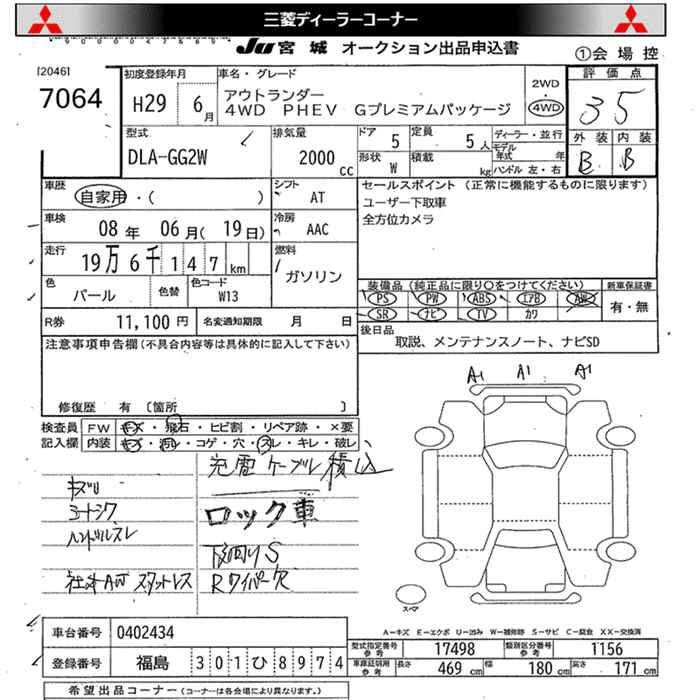 三菱ディーラーコーナー
JU 宮城 オークション出品申込書
①会場控
[2046]
7064
初度登録年月
H29 6月
車名・グレード
アウトランダー
4WD PHEV Gプレミアムパッケージ
2WD
・
4WD
評価点
35
外装 内装
B B
型式
DLA-GG2W
排気量
2000 cc
ドア 5
定員 5人
形状 W
積載 kg
ディーラー・並行
モデル年式 年
ハンドル 左・右
車歴
自家用・( )
シフト
AT
車検
08年 06月(19日)
冷房
AAC
走行
19万6千147km
燃料
ガソリン
色
パール
色替
色コード
W13
R券 11,100円
名変通知期限 月 日
セールスポイント (正常に機能するものに限ります)
ユーザー下取車
全方位カメラ
装備品 (純正品に限り○をつけてください)
PS PW ABS エアB AW
SR ナビ TV カワ
新車保証書
有・無
後日品
取説、メンテナンスノート、ナビSD
注意事項申告欄 (不具合内容等は具体的に記入して下さい)
修復歴 有 [箇所 ]
検査員記入欄
FW キズ・飛石・ヒビ割・リペア跡・×要
内装 キズ・汚れ・コゲ・穴・スレ・キレ・破レ
充電ケーブル積込
キズU
コートシワ
ロック車
ハンドルスレ
下回りS
社外AW スタットレス
Rワイパー欠
A1 A1 A1
スペア
A―キズ E―エクボ U―凹み W―補修跡 S―サビ C―腐食 XX―交換済
車台番号 0402434
登録番号 福島 301ひ8974
型式指定番号参考 17498
類別区分番号参考 1156
車庫証明用参考 長さ 469 cm 幅 180 cm 高さ 171 cm
希望出品コーナー (コーナーは各会場により異なります。)